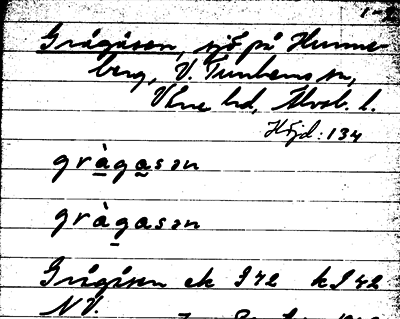 1-2
Grågåsen, sjö på Hunne-
berg, V. Tunhems sn,
Vne hd, Älvsb. l.
Höjd: 134
gràgasən
gràgasən
Grågåsen ek I 42 k I 42
NV.